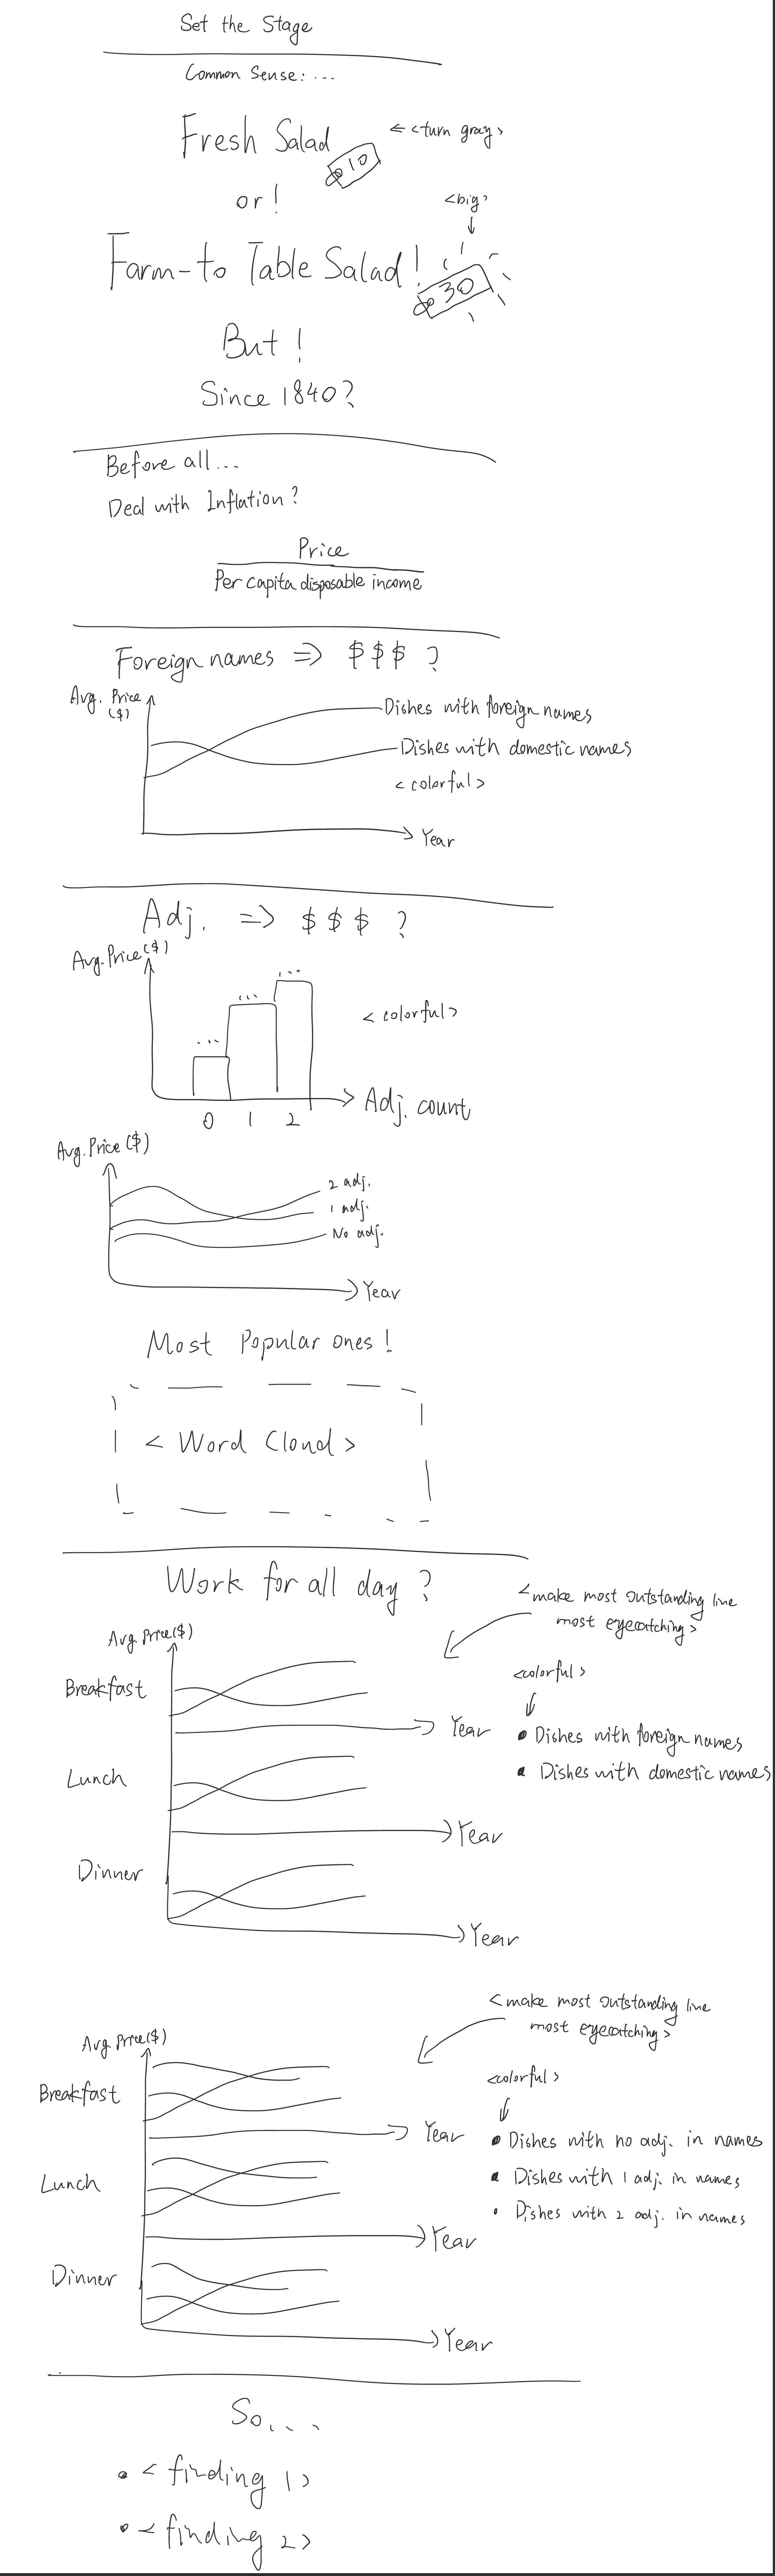 Set the Stage
Common Sense: ...
Fresh Salad
<turn gray>
$10
or!
<big>
Farm-to Table Salad!
$30
But!
Since 1840?
Before all...
Deal with Inflation?
Price
Per capita disposable income
Foreign names => $$$ ?
Avg. Price
($)
Dishes with foreign names
Dishes with domestic names
<colorful>
Year
Adj. => $$$ ?
Avg. Price ($)
...
...
...
<colorful>
0 1 2
Adj. count
Avg. Price ($)
2 adj.
1 adj.
No adj.
Year
Most Popular ones!
< Word Cloud >
Work for all day?
<make most outstanding line
most eyecatching>
Avg. Price($)
<colorful>
Breakfast
Year
• Dishes with foreign names
• Dishes with domestic names
Lunch
Year
Dinner
Year
<make most outstanding line
most eyecatching>
Avg. Price($)
<colorful>
Breakfast
Year
• Dishes with no adj. in names
• Dishes with 1 adj. in names
• Dishes with 2 adj. in names
Lunch
Year
Dinner
Year
So...
• <finding 1>
• <finding 2>